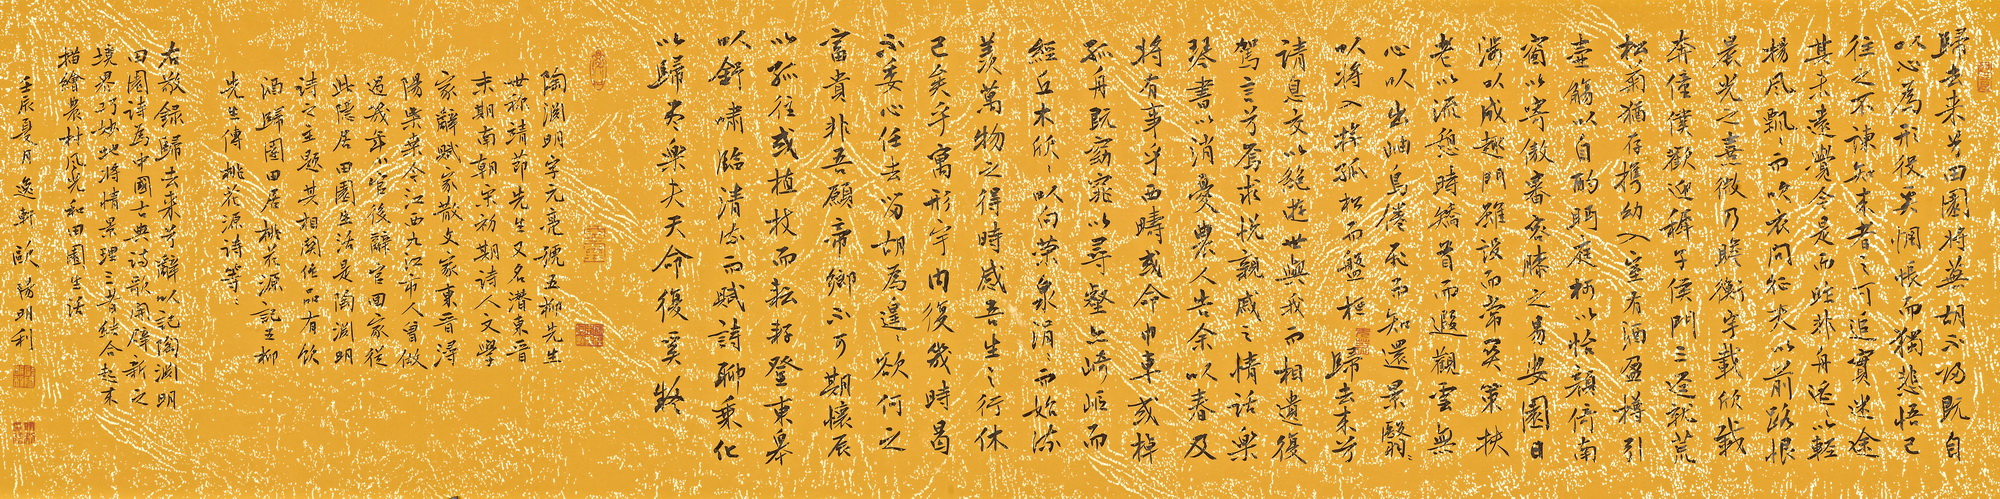 歸去來兮田園將蕪胡不歸既自
以心為形役奚惆悵而獨悲悟已
往之不諫知來者之可追實迷途
其未遠覺今是而昨非舟遙〻以輕
颺風飄〻而吹衣問征夫以前路恨
晨光之熹微乃瞻衡宇載欣載
奔僮僕歡迎稚子候門三逕就荒
松菊猶存攜幼入室有酒盈樽引
壺觴以自酌眄庭柯以怡顏倚南
窗以寄傲審容膝之易安園日
涉以成趣門雖設而常關策扶
老以流憩時矯首而遐觀雲無
心以出岫鳥倦飛而知還景翳〻
以將入撫孤松而盤桓 歸去來兮
請息交以絕遊世與我而相遺復
駕言兮焉求悅親戚之情話樂
琴書以消憂農人告余以春及
將有事乎西疇或命巾車或棹
孤舟既窈窕以尋壑亦崎嶇而
經丘木欣〻以向榮泉涓〻而始流
羨萬物之得時感吾生之行休
已矣乎寓形宇內復幾時曷
不委心任去留胡為遑〻欲何之
富貴非吾願帝鄉不可期懷良
以孤往或植杖而耘耔登東皋
以舒嘯臨清流而賦詩聊乘化
以歸盡樂夫天命復奚疑
陶淵明字元亮號五柳先生
世稱靖節先生又名潛東晉
末期南朝宋初期詩人文學
家辭賦家散文家東晉潯
陽柴桑今江西九江市人曾做
過幾年小官後辭官回家從
此隱居田園生活是陶淵明
詩之主題其相關作品有飲
酒歸園田居桃花源記五柳
先生傳桃花源詩等〻
右敬錄歸去來兮辭以記陶淵明
田園詩為中國古典詩歌開闢新之
境界巧妙地將情景理三者結合起來
描繪農村風光和田園生活
壬辰夏月逸軒歐陽明利